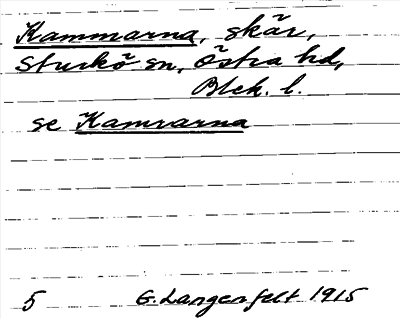 Kammarna, skär,
Sturkö sn, Östra hd,
Blek. l.
se Kamrarna
5 G. Langenfelt 1915